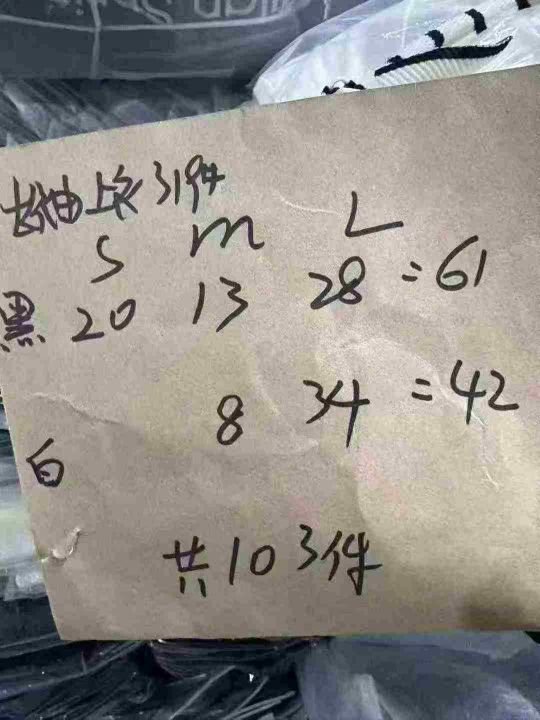 长袖上衣319件
S m L
黑 20 13 28 = 61
8 34 = 42
白
共103件